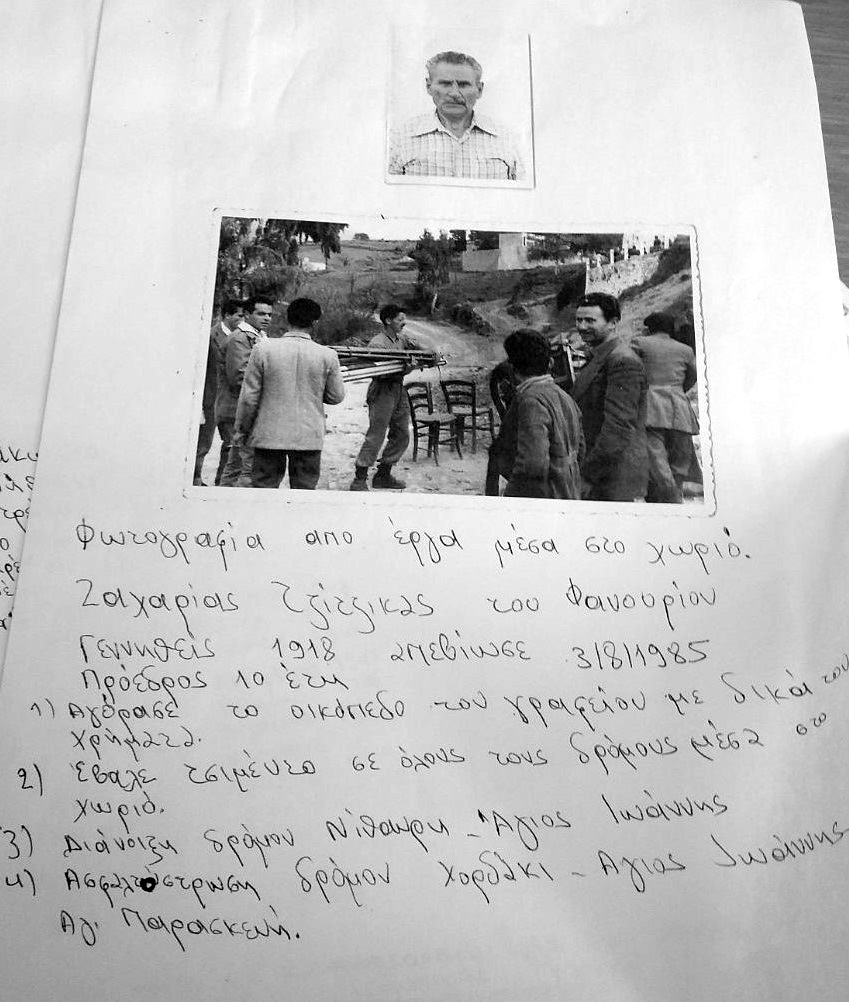 Φωτογραφία απο έργα μέσα στο χωριό.
Ζαχαρίας Τζίτζικας του Φανουρίου
Γεννηθείς 1918 απεβίωσε 3/8/1985
Πρόεδρος 10 έτη
1) Αγόρασε το οικόπεδο του γραφείου με δικά του
χρήματα.
2) Έβαλε τσιμέντο σε όλους τους δρόμους μέσα στο
χωριό.
3) Διάνοιξη δρόμου Νίθαυρη - Άγιος Ιωάννης
4) Ασφαλτόστρωση δρόμου Χορδάκι - Αγιος Ιωάννης
Αγ. Παρασκευή.